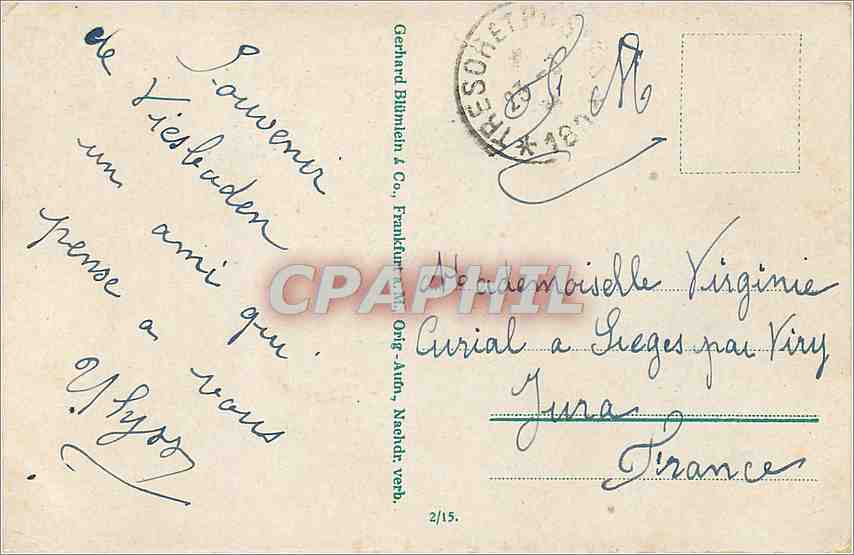 Souvenir
de Viesbaden
un ami qui
pense a vous
Ulyss
Gerhard Blümlein & Co., Frankfurt a. M., Orig-Aufn., Nachdr. verb.
2/15.
TRESOR ET POSTES
* 180 *
23
S. M
CPAPHIL
Mademoiselle Virginie
Curial a Sieges par Viry
Jura
France